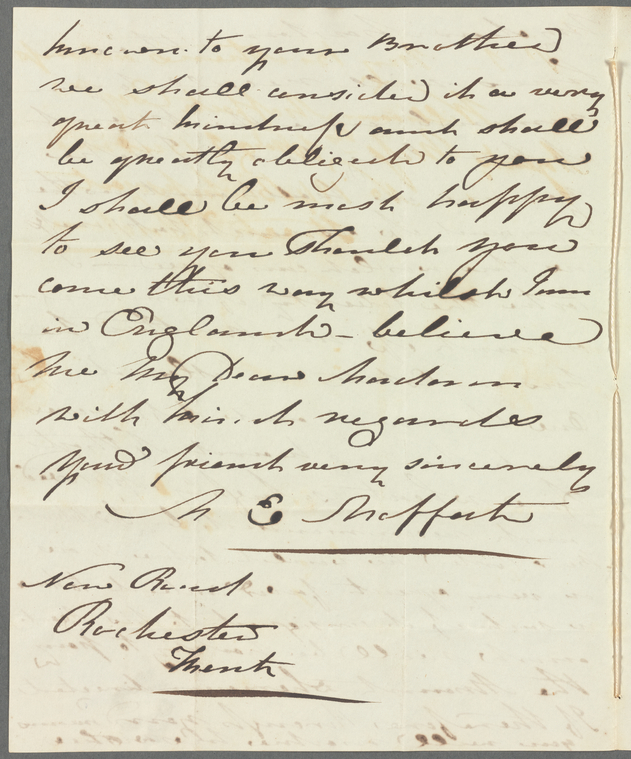 known to your Brother
we shall consider it a very
great kindness and shall
be greatly obliged to you
I shall be most happy
to see you Should you
come this way whilst I am
in England - believe
me My Dear Madam
with kindest regards
your friend very sincerely
M E Moffatt
New Road.
Rochester
Kent